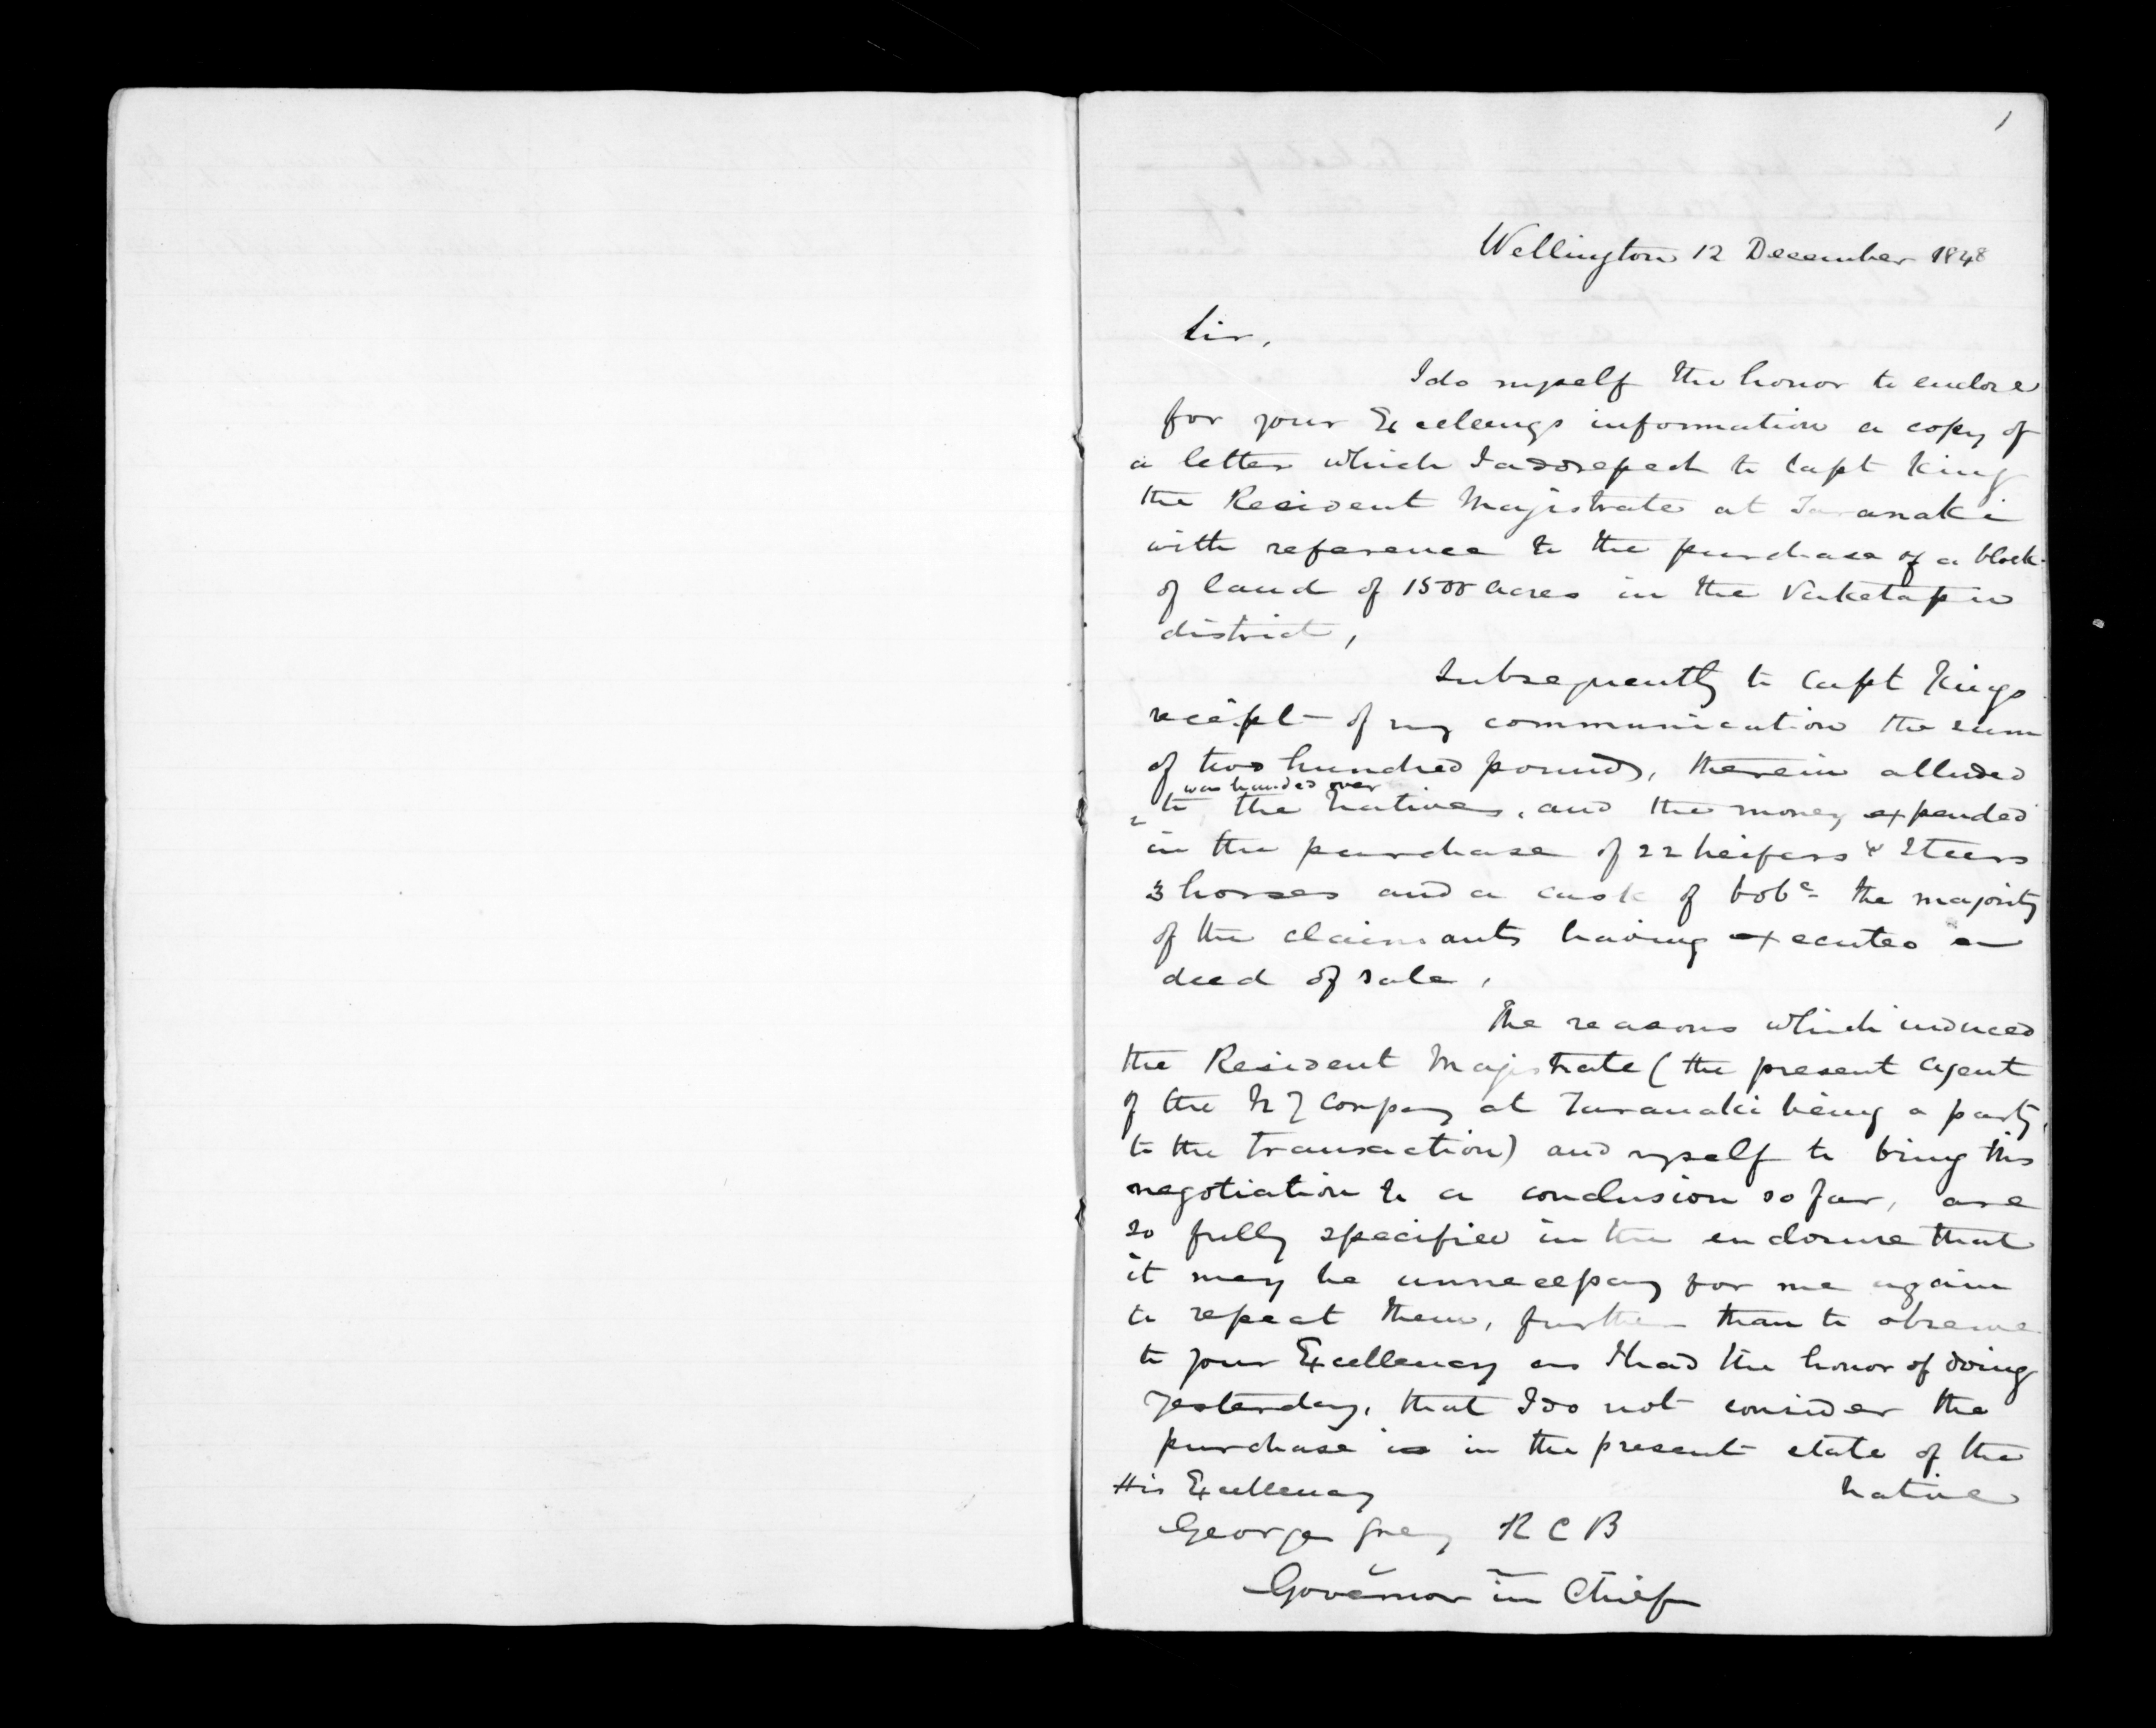 1
Wellington 12 December 1848
Sir,
I do myself the honor to enclose
for your Excellencys information a copy of
a letter which I addressed to Capt King
the Resident Magistrate at Taranaki
with reference to the purchase of a block
of land of 1500 acres in the Puketapu
district,
Subsequently to Capt Kings
receipt of my communication the sum
of two hundred pounds, therein alluded
was handed over
to, the natives, and the money expended
in the purchase of 22 heifers & Steers
3 horses and a cask of tobc the majority
of the claimants having executed a
deed of sale,
The reasons which induced
the Resident Magistrate (the present agent
of the NZ Company at Taranaki being a party
to the transaction) and myself to bring this
negotiation to a conclusion so far, are
so fully specified in the enclosure that
it may be unnecessary for me again
to repeat them, further than to observe
to your Excellency as I had the honor of doing
yesterday, that I do not consider the
purchase is in the present state of the
native
His Excellency
George Grey K C B
Governor in Chief